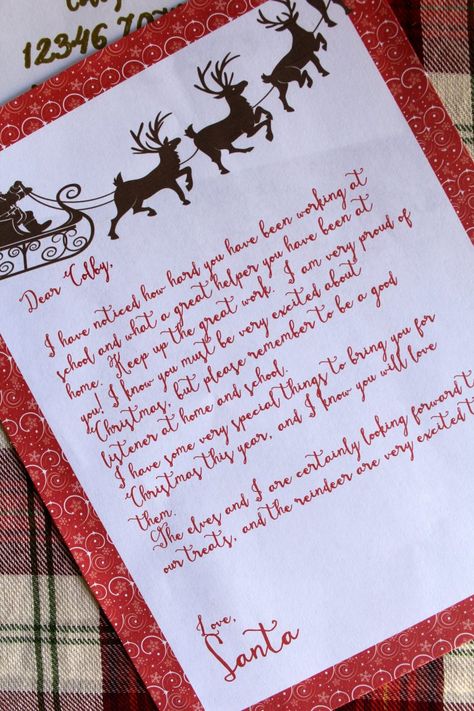 12345
Dear Colby,
I have noticed how hard you have been working at
school and what a great helper you have been at
home. Keep up the great work. I am very proud of
you! I know you must be very excited about
Christmas, but please remember to be a good
listener at home and school.
I have some very special things to bring you for
Christmas this year, and I know you will love
them.
The elves and I are certainly looking forward t
our treats, and the reindeer are very excited t
Love,
Santa